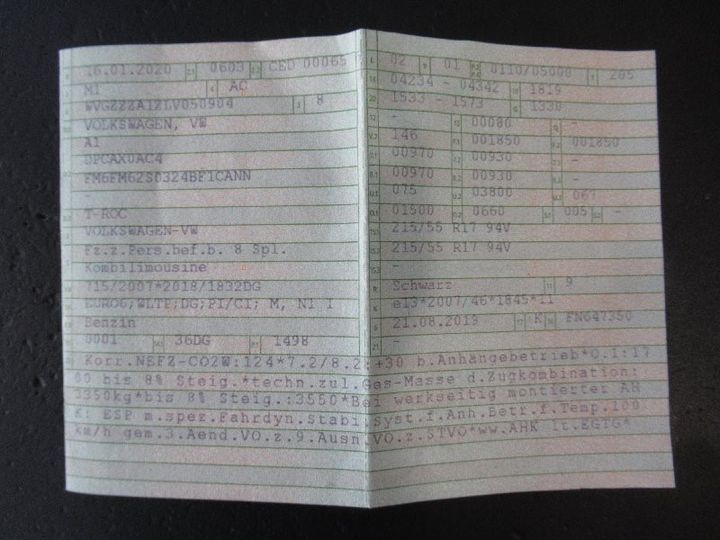 16.01.2020 0603 CED 00065
M1 AC
WVGZZZA1ZLV050904 8
VOLKSWAGEN, VW
A1
DPCAX0AC4
FM6FM62S0324BF1CANN
-
T-ROC
VOLKSWAGEN-VW
Fz.z.Pers.bef.b. 8 Spl.
Kombilimousine
715/2007*2018/1832DG
EURO6;WLTP;DG;PI/CI; M, N1 I
Benzin
0001 36DG 1498
02 01 0110/05000 205
04234 - 04342 1819
1533 - 1573 1330
- 00080 -
146 001850 001850
00970 00930 -
00970 00930 -
075 03800 067
01500 0660 005 -
215/55 R17 94V
215/55 R17 94V
-
Schwarz 9
e13*2007/46*1845*11
21.08.2019 K FN647350
-
Korr.NEFZ-CO2W:124*7.2/8.2:+30 b.Anhängebetrieb*O.1:17
00 bis 8% Steig.*techn.zul.Ges-Masse d.Zugkombination:
3350kg*bis 8% Steig.:3550*Bei werkseitig montierter AH
K: ESP m.spez.Fahrdyn.Stabi.Syst.f.Anh.Betr.f.Temp.100
km/h gem.3.Aend.VO.z.9.Ausn.VO.z.STVO*ww.AHK lt.EGTG*